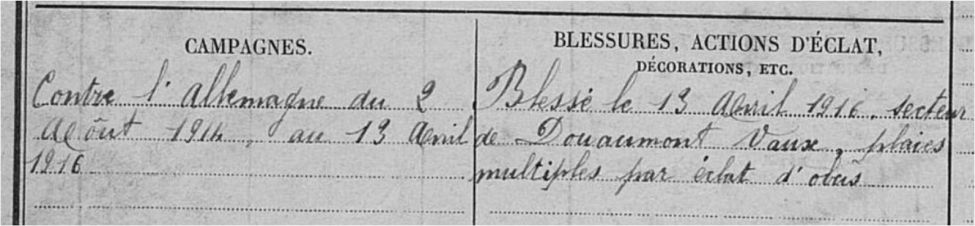 CAMPAGNES.
Contre l'Allemagne du 2
Août 1914, au 13 Avril
1916
BLESSURES, ACTIONS D'ÉCLAT,
DÉCORATIONS, ETC.
Blessé le 13 Avril 1916, secteur
de Douaumont Vaux, plaies
multiples par éclat d'obus